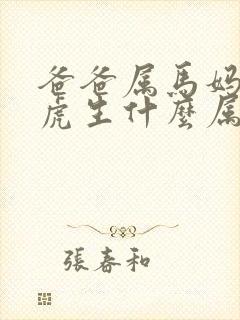 爸爸属馬妈
虎生什麼属
張春和